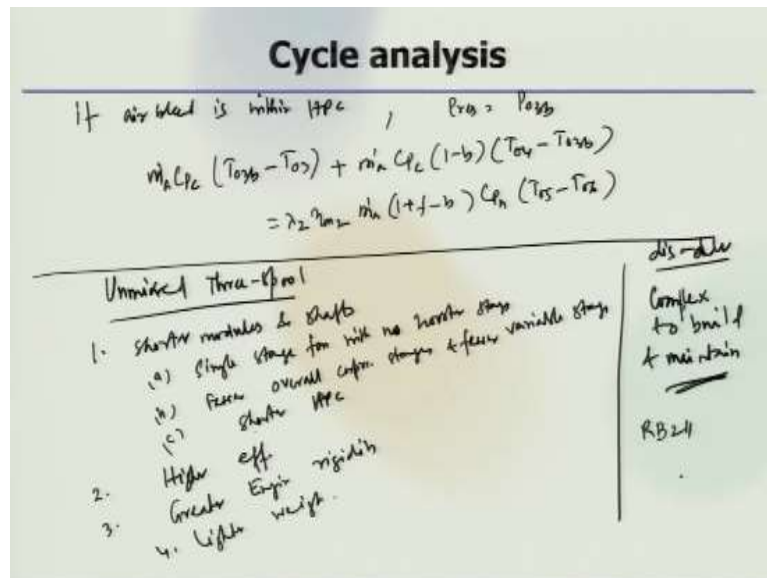 Cycle analysis
If air bleed is within HPC, P₀₃b = P₀₃b
ṁₐCPc (T₀₃b - T₀₃) + ṁₐ CPc (1-b) (T₀₄ - T₀₃b)
= λ₂ ηm₂ ṁₐ (1+f-b) CPh (T₀₅ - T₀₆)
Unmixed Three-spool
1. shorter modules & shafts
(a) Single stage fan with no booster stage
(b) Fewer overall compr. stages & fewer variable stage
(c) Shorter HPC
2. Higher eff.
3. Greater Engin rigidity
4. Lighter weight.
dis-adv
Complex
to build
& maintain
RB211